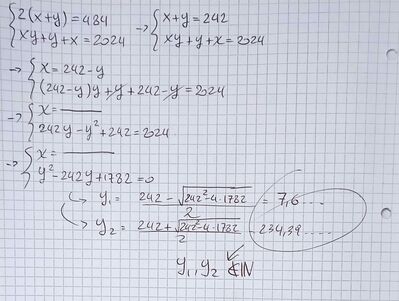 {2(x+y)=484 → {x+y=242
{xy+y+x=2024 {xy+y+x=2024
→ {x=242-y
{(242-y)y+y+242-y=2024
→ {x=———
{242y-y²+242=2024
→ {x=———
{y²-242y+1782=0
↳ y₁ = (242-√(242²-4·1782))/2 = 7,6....
↳ y₂ = (242+√(242²-4·1782))/2 = 234,39......
y₁, y₂ ∉ ℕ